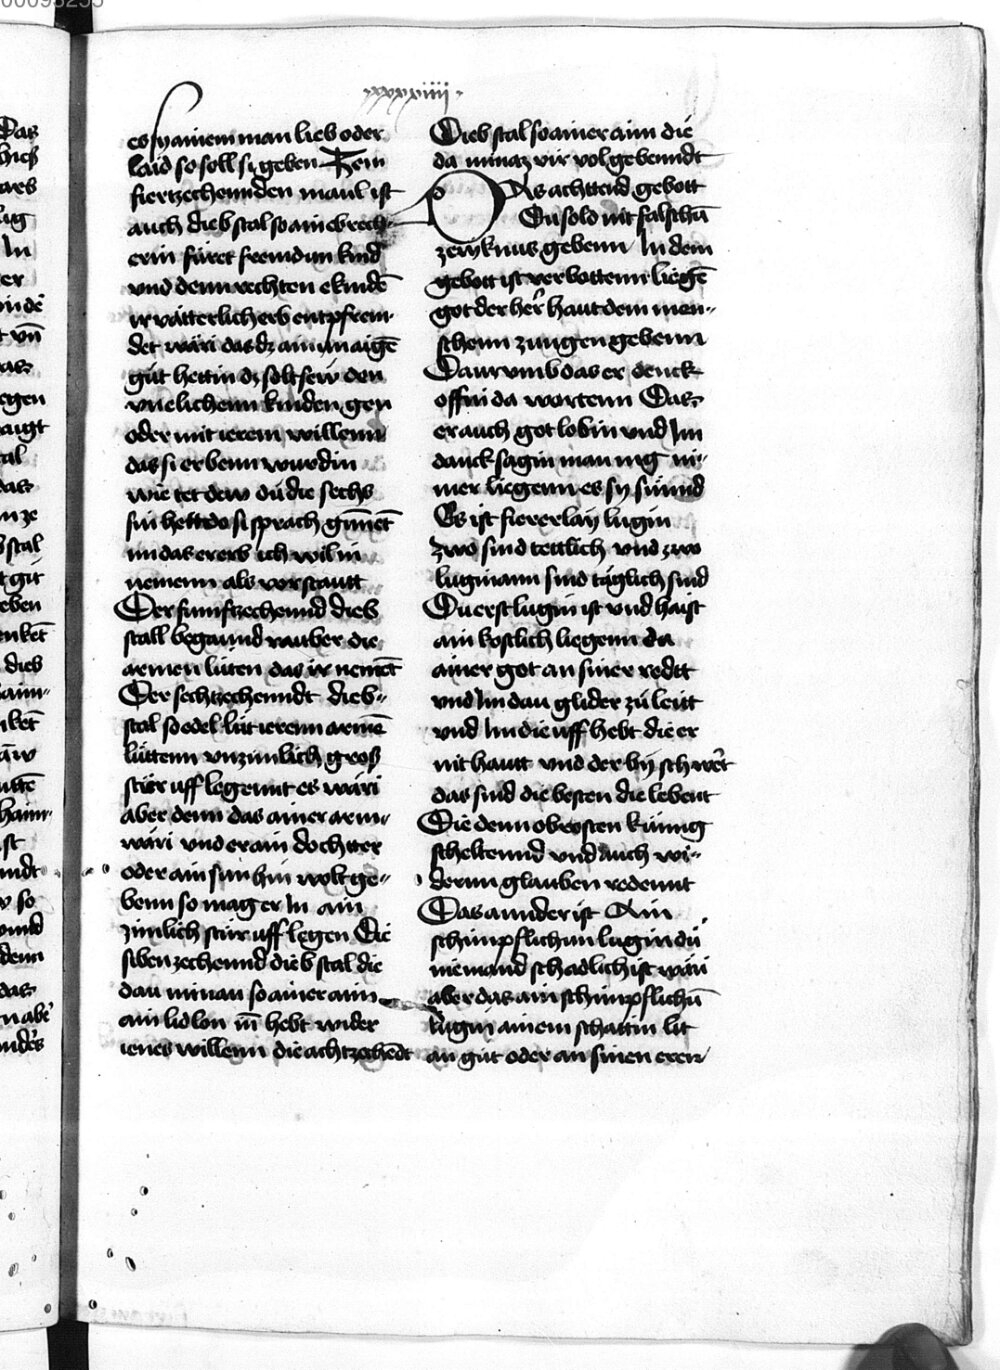 xxxxxiiii
es sy ainem man lieb oder
laid so soll sy geben Zem
fiertzechennden maul ist
auch diebstal so ain ebrech-
erin füret fremdun kind
vnd denn rechten ekindē
ir vätterlich erb entpfrem-
det wäri das dz ainun aigē
gůt hettin dz solt sew den
vnelichenn kinden gen
oder mit ierem willenn
das si erbenn wurdin
wie tet dew
sin hett do si sprach gunnēt
im das er erb ich wil in
nemenn als vorstautt
Der funftzechennd dieb
stall begannd rauber die
armen lüten das ir nemēt
Der sechtzechenndt dieb-
stal so edel lüt ierenn armē
lüttenn vnzimlich groß
stür uff legennt es wäri
aber denn das ainer arm
wäri vnd er ain dochtter
oder ain sun hin wolt ge-
benn so mag er In ain
zimlich stür uff legen Die
sibenzechennd diebstal die
dan minan so ainer aim
ain lidlon in hebt wider
ienes willenn die achtzechēdt
Diebstal so ainer aim die
da minaz vir vol gebenndt
DAs achttend gebott
Du sold nit falschū
zewknus gebenn In dem
gebott ist verbottenn liegē
got der her haut dem men-
schenn zungen gebenn
Darvmb das er denck
offni da wortenn Das
er auch got lobin vnd Im
danck sagin man mg ni-
mer liegenn es sy sünnd
Es ist fiererlay lugin
zwo sind tettlich vnd zwo
luginann sind täglich sind
Du erst lugin ist vnd haist
ain kostlich liegenn da
ainer got an siner redtt
vnd Im dan glider zů leitt
vnd Im die uff hebt die er
nit hautt vnd der by schwert
das sind die besten die lebent
Die denn obrosten künng
scheltennd vnd auch wi-
derun glauben redennt
Das annder ist Ain
schimpflichun lugin dü
niemand schadlich ist wäri
aber das ain schimpflichū
lugin ainem schattin lit
an gůt oder an sinen eren